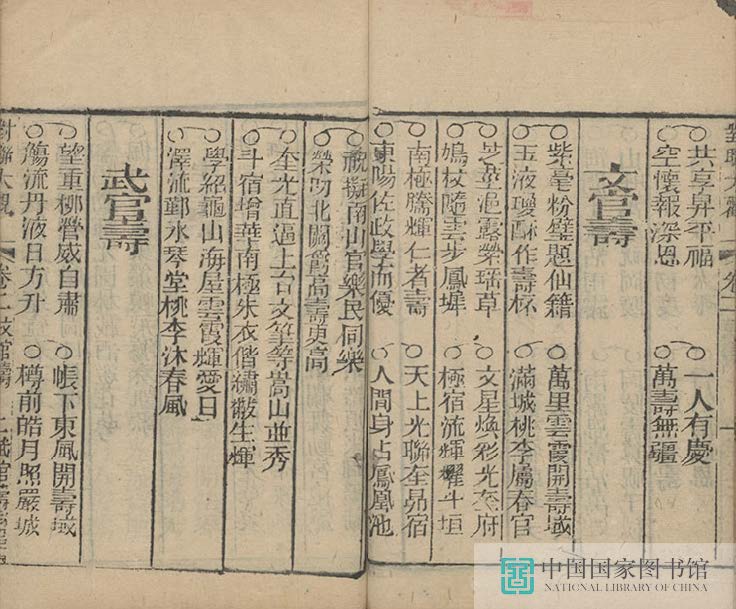 對聯大觀 卷二
共享昇平福 一人有慶
空懷報深恩 萬壽無疆
文官壽
紫毫粉壁題仙籍 萬里雲霞開壽域
玉液瓊酥作壽杯 滿城桃李屬春官
芝浥露榮瑤草 文星煥彩光奎府
鳩杖隨雲步鳳墀 極宿流輝耀斗垣
南極騰輝仁者壽 天上光聯奎昴宿
東陽佐政學而優 人間身占鳳凰池
祝擬南山官樂民同樂
榮叨北闕爵高壽更高
奎光直逼上台文筆等嵩山並秀
斗宿增華南極朱衣偕繡黻生輝
學紹龜山海屋雲霞輝愛日
澤流水琴堂桃李沐春風
武官壽
望重柳營威自肅 帳下東風開壽域
觴流丹液日方升 樽前皓月照嚴城
對聯大觀 卷二 文官壽 武官壽
中国国家图书馆
NATIONAL LIBRARY OF CHINA